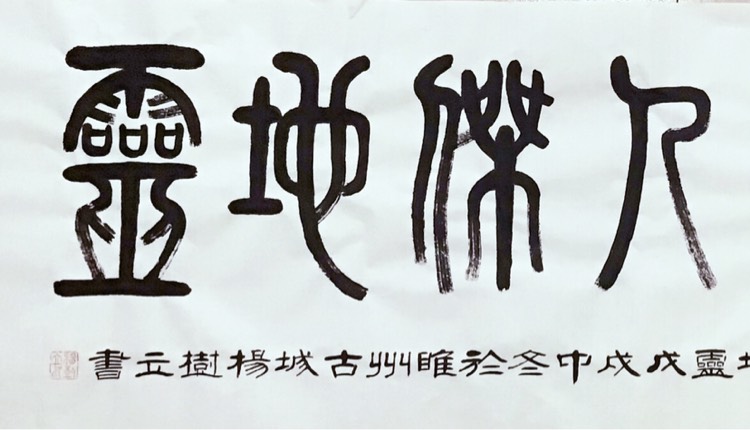 人傑地靈
地靈戊戌中冬於睢州古城楊樹立書